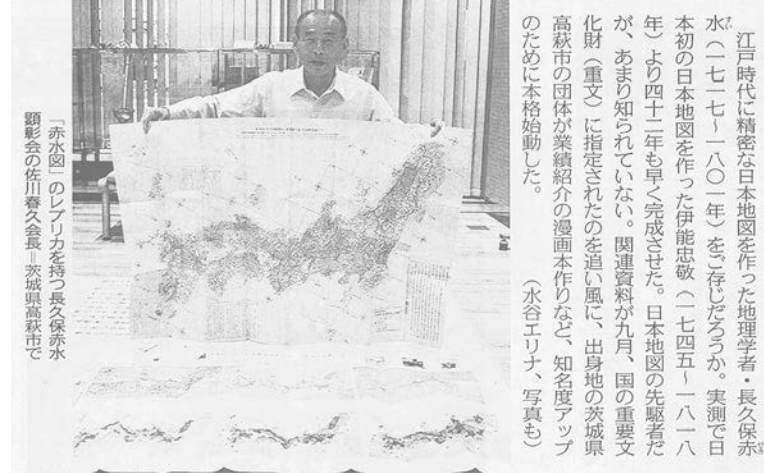 江戸時代に精密な日本地図を作った地理学者・長久保赤
水(一七一七~一八〇一年)をご存じだろうか。実測で日
本初の日本地図を作った伊能忠敬(一七四五~一八一八
年)より四十二年も早く完成させた。日本地図の先駆者だ
が、あまり知られていない。関連資料が九月、国の重要文
化財(重文)に指定されたのを追い風に、出身地の茨城県
高萩市の団体が業績紹介の漫画本作りなど、知名度アップ
のために本格始動した。
(水谷エリナ、写真も)
「赤水図」のレプリカを持つ長久保赤水
顕彰会の佐川春久会長=茨城県高萩市で